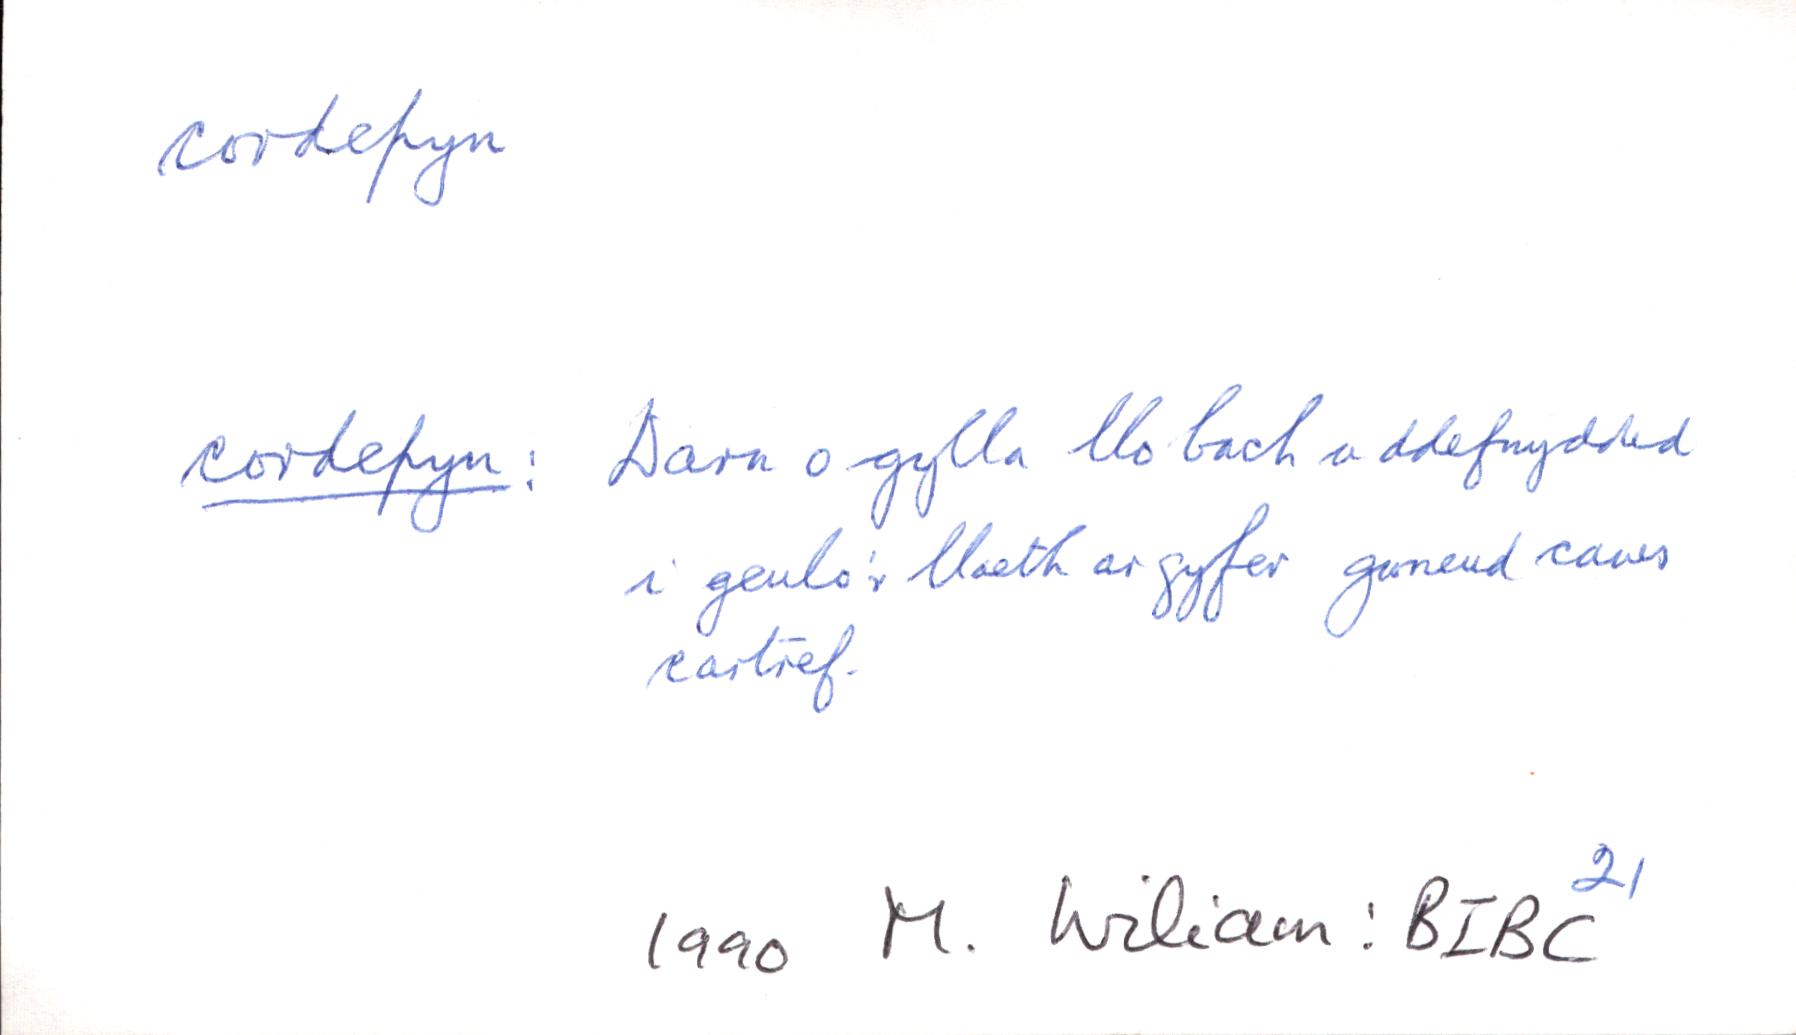 cordepyn
cordepyn: Darn o gylla llo bach a ddefnyddid
i geulo'r llaeth ar gyfer gwneud caws
cartref.
1990 M. Wiliam: BIBC 21